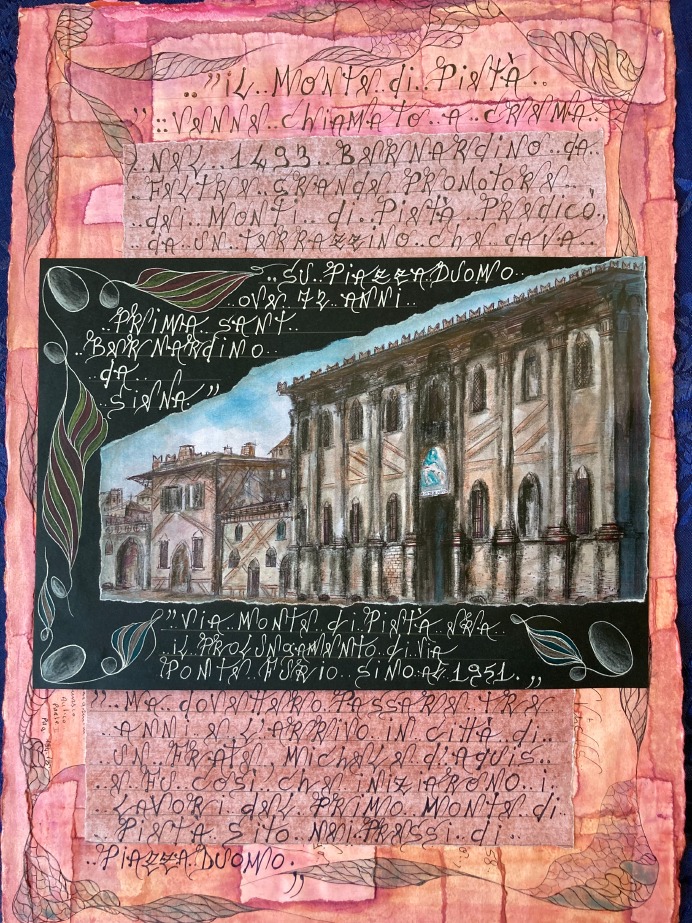 "IL MONTE di PIETÀ
"VENNE CHIAMATO A CREMA
NEL 1493 BERNARDINO da
FELTRE GRANDE PROMOTORE
dei MONTI di PIETÀ PREDICÒ,
da UN TERRAZZINO CHE dAVA
SU PIAZZA DUOMO
OVE 72 ANNI
PRIMA SANT
BERNARDINO
da
SIENA"
"VIA MONTE di PIETÀ ERA
IL PROLUNGAMENTO di VIA
PONTE FURIO SINO AL 1951."
MA dOVETTERO PASSARE TRE
ANNI E L'ARRIVO IN CITTÀ di
UN FRATE MICHELE d'AQUIS
E FU COSÌ CHE INIZIARONO i
LAVORI dEL PRIMO MONTE di
PIETÀ SITO NEI PRESSI di
PIAZZA DUOMO.
"